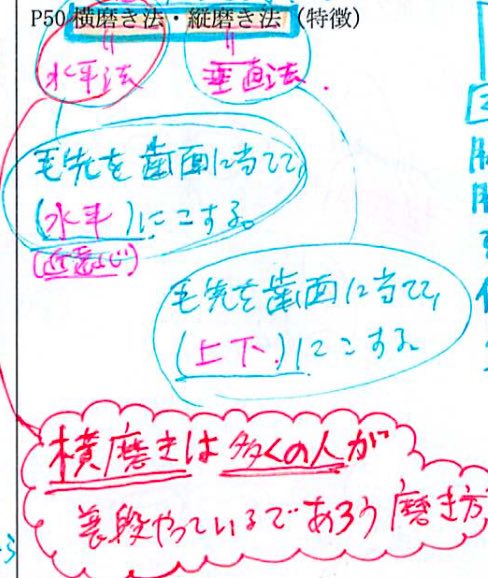 P50 横磨き法・縦磨き法（特徴）
水平法 垂直法
毛先を歯面に当てて、
(水平)にこする。
(近遠心)
毛先を歯面に当てて、
(上下)にこする。
横磨きは多くの人が
普段やっているであろう磨き方